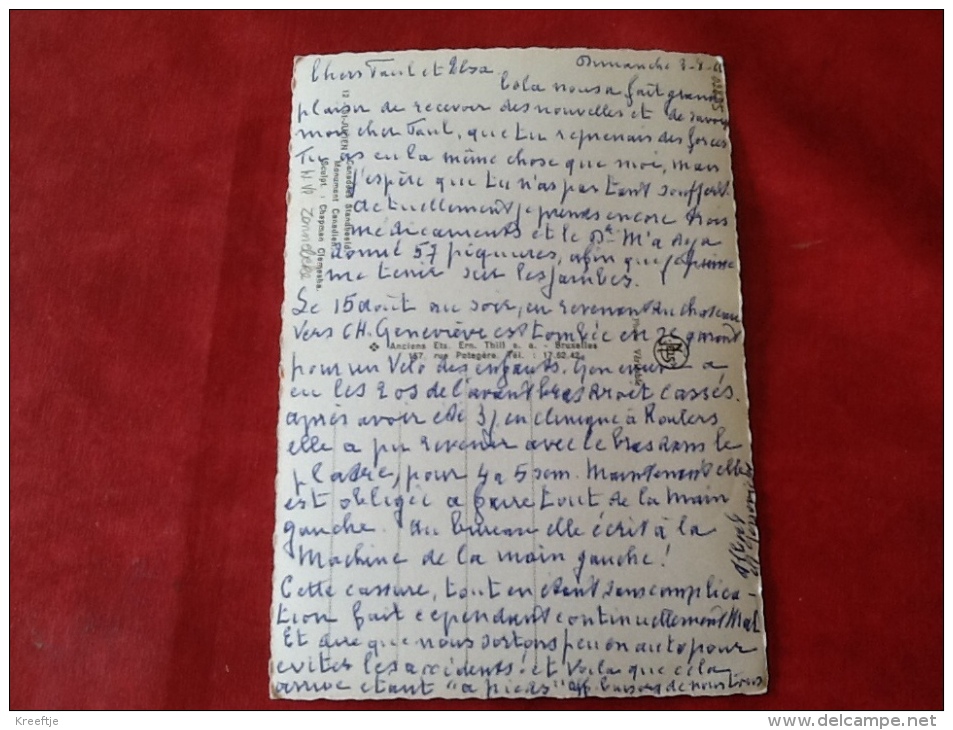 Chers Paul et Elsa. Dimanche 3-9-
Cela nous a fait grand
plaisir de recevoir des nouvelles et de savoir
mon cher Paul, que tu reprenais des forces
Tu as eu la même chose que moi, mais
j'espère que tu n'as pas tant souffert.
Actuellement je prends encore trois
médicaments et le Dr M'a déjà
donné 57 piqures, afin que je puisse
me tenir sur les jambes.
Le 15 août au soir, en revenant du chateau
vers CH. Geneviève est tombée en se garant
pour un Vélo des enfants. Geneviève a
eu les 2 os de l'avant bras droit cassés.
après avoir été 3 j. en clinique à Roulers
elle a pu revenir avec le bras dans le
platre, pour 4 a 5 sem. Maintenant elle
est obligée a faire tout, de la main
gauche. Au bureau elle écrit à la
Machine de la main gauche!
Cette cassure, tout en étant sans complica-
tion fait cependant continuellement Mal
Et dire que nous sortons peu en auto pour
eviter les accidents! et voila que cela
arrive etant "a pieds" aff. baisers de nous tous
Canadees Standbeeld
Monument Canadien
Sculpt. : Chapman Clemesha.
Zonnebeke
❖ Anciens Ets. Ern. Thill s. a. - Bruxelles
167, rue Potagère. Tél. : 17.52.42
Kreeftje